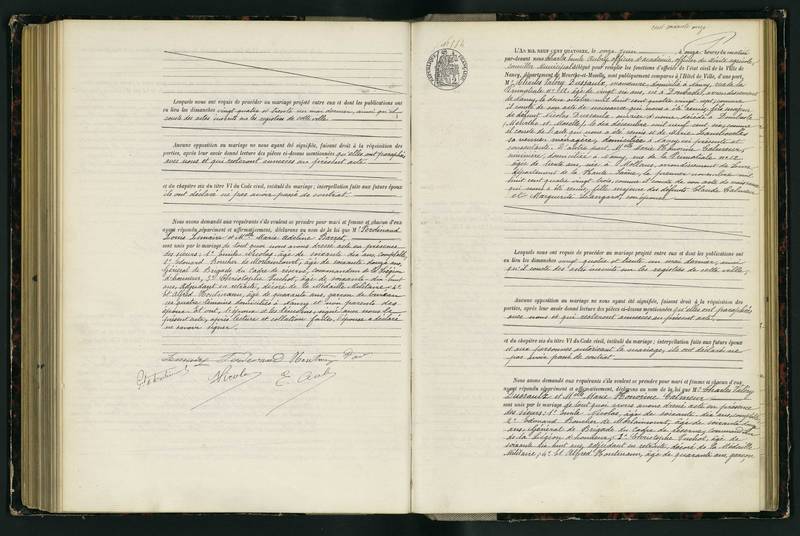 Lesquels nous ont requis de procéder au mariage projeté entre eux et dont les publications ont
eu lieu les dimanches vingt quatre et trente un mai dernier, ainsi qu'il
conste des actes inscrits sur les registres de cette ville.
Aucune opposition au mariage ne nous ayant été signifiée, faisant droit à la réquisition des
parties, après leur avoir donné lecture des pièces ci-dessus mentionnées qu'elles ont paraphées
avec nous et qui resteront annexées au présent acte,
et du chapitre six du titre VI du Code civil, intitulé du mariage; interpellation faite aux futurs époux
ils ont déclaré ne pas avoir passé de contrat.
Nous avons demandé aux requérants s'ils veulent se prendre pour mari et femme et chacun d'eux
ayant répondu séparément et affirmativement, déclarons au nom de la loi que Mr Ferdinand
Louis et Mlle Marie Adeline
sont unis par le mariage de tout quoi nous avons dressé acte en présence
des sieurs: 1° Emile Nicolas, âgé de soixante dix ans, comptable,
2° Edouard Boucher de Morlaincourt, âgé de soixante douze ans,
Général de Brigade du Cadre de réserve, commandeur de la Légion
d'honneur, 3° Christophe âgé de soixante dix huit
ans, adjudant en retraite, décoré de la Médaille Militaire, 4°
et Alfred âgé de quarante ans, garçon de bureau,
les quatre témoins domiciliés à Nancy et non parents des
époux. Et ont, l'époux et les témoins, signé avec nous le
présent acte, après lecture et collation faites, l'épouse a déclaré
ne savoir signer.
Nicolas
L'AN MIL NEUF CENT QUATORZE, le onze juin à onze heures du matin
par-devant nous Charles Emile officier d'académie, officier du mérite agricole,
conseiller Municipal délégué pour remplir les fonctions d'officier de l'état civil de la Ville de
Nancy, département de Meurthe-et-Moselle, sont publiquement comparus à l'Hôtel de Ville, d'une part,
Mr Charles Valéry manœuvre, domicilié à Nancy, rue de la
Primatiale n° 12, âgé de vingt six ans, né à Dombasle, arrondissement
de Nancy, le deux octobre mil huit cent quatre vingt sept, comme
il conste de son acte de naissance qui nous a été remis, fils majeur
de défunt Nicolas décédé à Dombasle
(Meurthe et Moselle), le dix décembre mil neuf cent
sa veuve, ménagère, domiciliée à Nancy ici présente et
consentante. D'autre part Mlle Marie Honorine
ouvrière, domiciliée à Nancy, rue de la Primatiale n° 12,
âgée de trente ans, née à arrondissement de Lure,
département de la Haute Saône, le premier novembre mil
huit cent quatre vingt trois, comme il conste de son acte de naissance
qui nous a été remis, fille majeure des défunts Claude
et Marguerite
Lesquels nous ont requis de procéder au mariage projeté entre eux et dont les publications ont
eu lieu les dimanches vingt quatre et trente un mai dernier, ainsi
qu'il conste des actes inscrits sur les registres de cette ville,
Aucune opposition au mariage ne nous ayant été signifiée, faisant droit à la réquisition des
parties, après leur avoir donné lecture des pièces ci-dessus mentionnées qu'elles ont paraphées
avec nous et qui resteront annexées au présent acte,
et du chapitre six du titre VI du Code civil, intitulé du mariage; interpellation faite aux futurs époux
et aux personnes autorisant le mariage, ils ont déclaré ne
pas avoir passé de contrat.
Nous avons demandé aux requérants s'ils veulent se prendre pour mari et femme et chacun d'eux
ayant répondu séparément et affirmativement, déclarons au nom de la loi que Mr Charles Valéry
et Mlle Marie Honorine
sont unis par le mariage de tout quoi nous avons dressé acte en présence
des sieurs: 1° Emile Nicolas, âgé de soixante dix ans, comptable,
2° Edouard Boucher de Morlaincourt, âgé de soixante douze
ans, Général de Brigade du Cadre de réserve, commandeur
de la Légion d'honneur, 3° Christophe âgé de
soixante dix huit ans, adjudant en retraite, décoré de la Médaille
Militaire, 4° et Alfred âgé de quarante ans, garçon